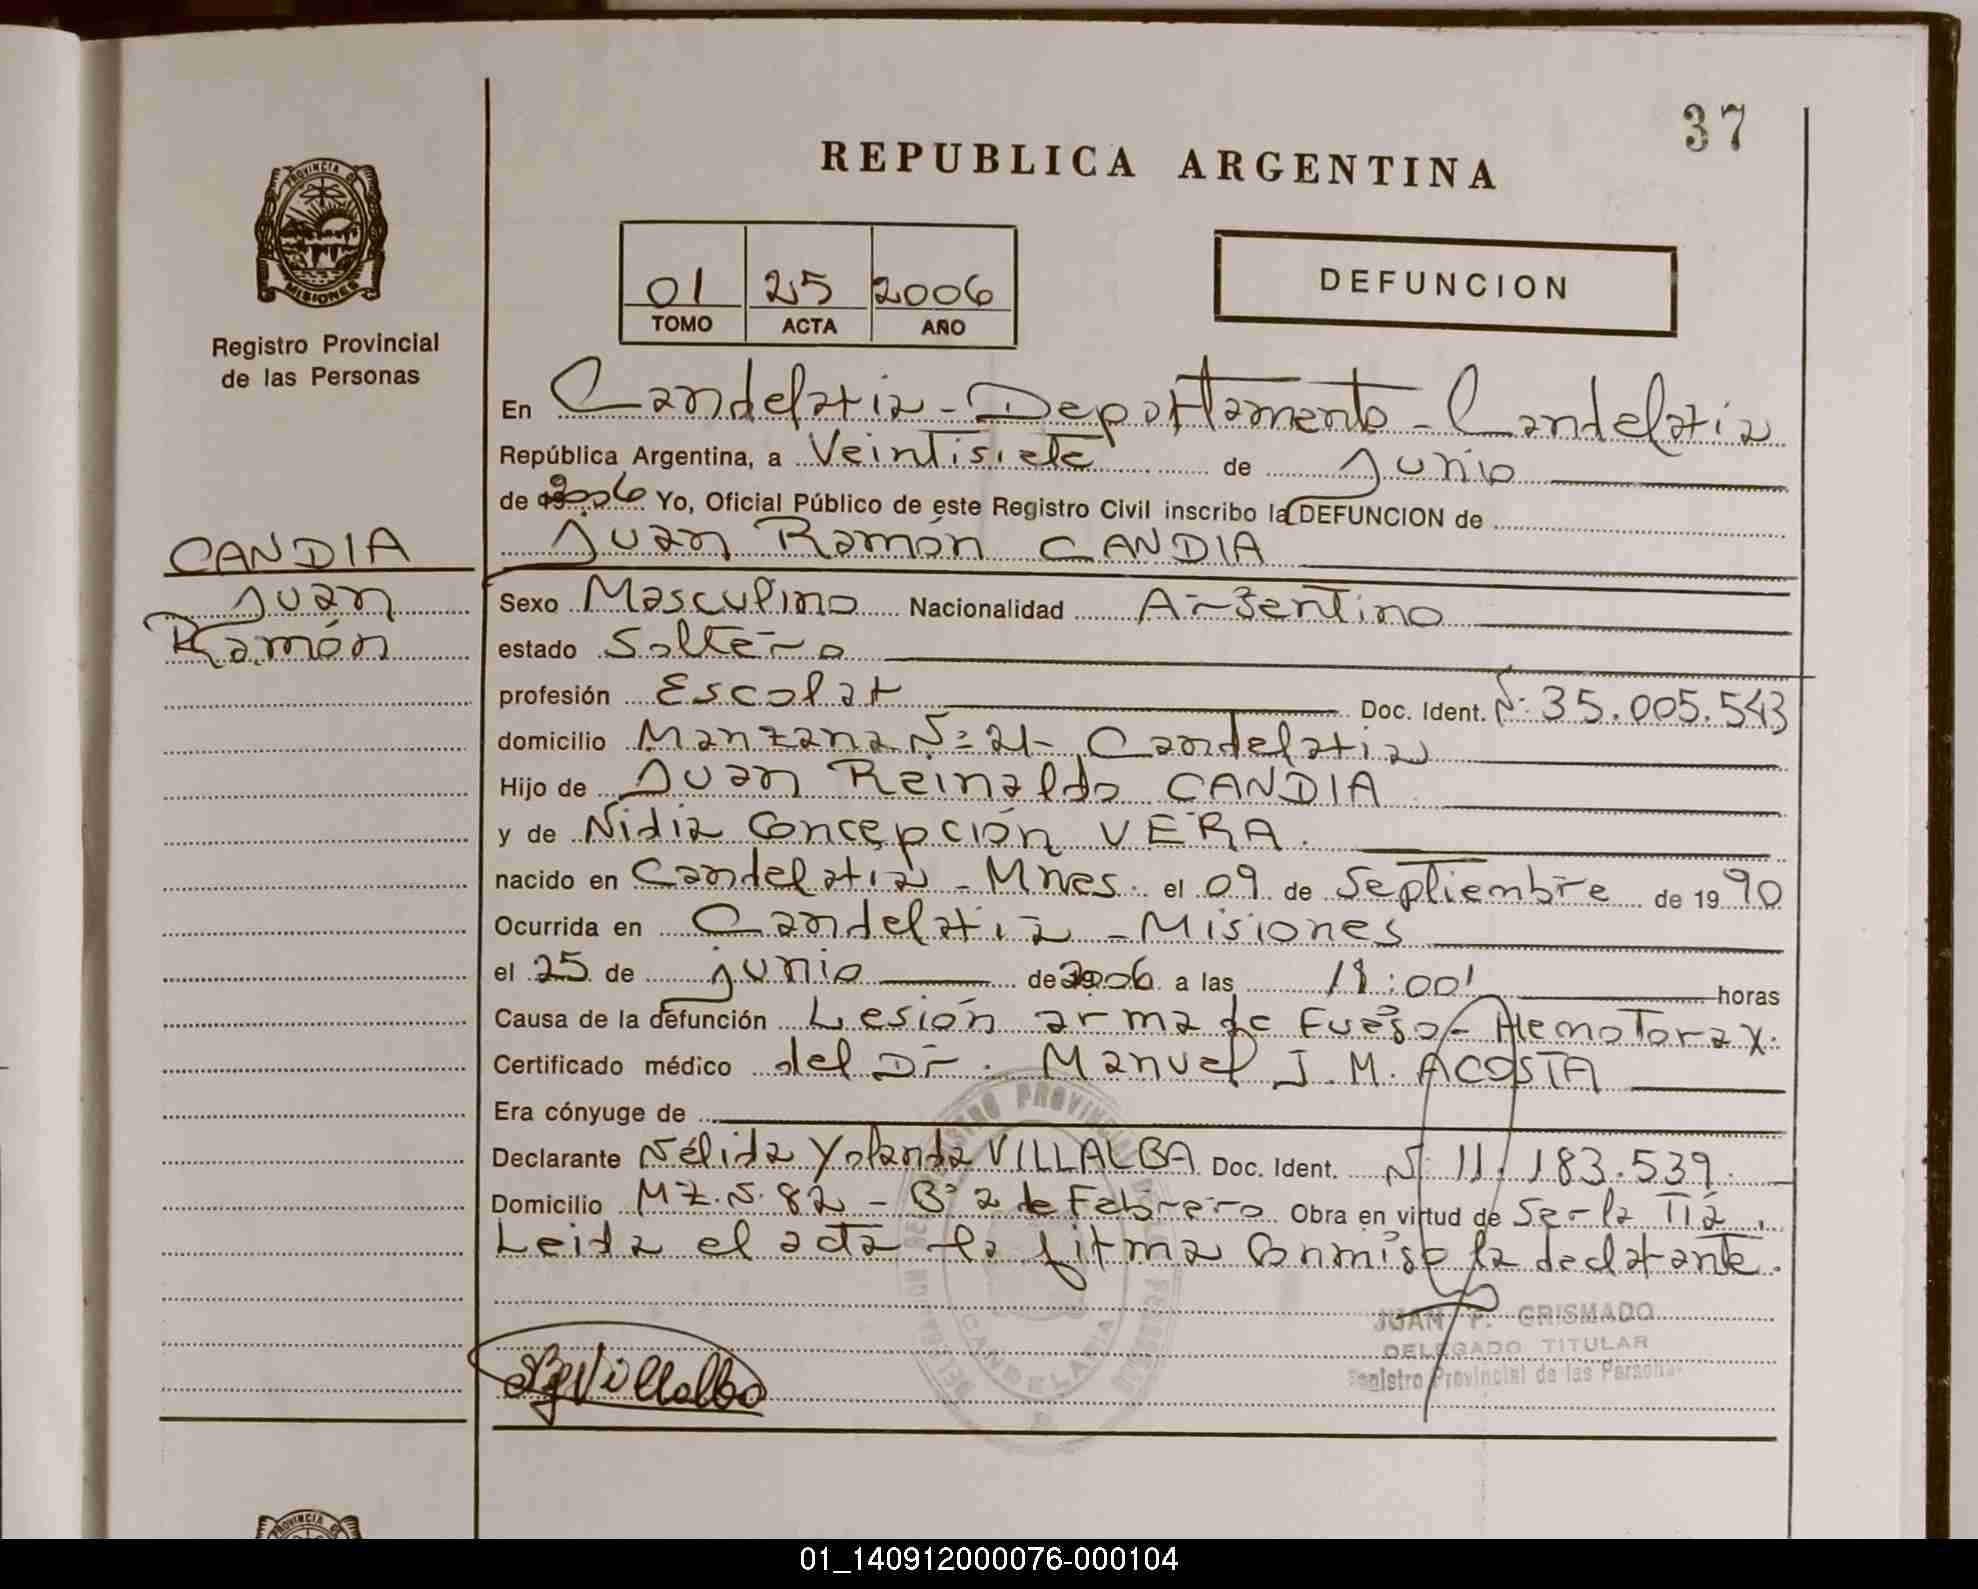 37
REPUBLICA ARGENTINA
PROVINCIA DE
MISIONES
Registro Provincial
de las Personas
01 25 2006
TOMO ACTA AÑO
DEFUNCION
En Candelaria - Departamento - Candelaria
República Argentina, a Veintisiete de Junio
de 2006 Yo, Oficial Público de este Registro Civil inscribo la DEFUNCION de
Juan Ramón CANDIA
CANDIA
Juan
Ramón
Sexo Masculino Nacionalidad Argentino
estado Soltero
profesión Escolar Doc. Ident. Nº 35.005.543
domicilio Manzana Nº 21- Candelaria
Hijo de Juan Reinaldo CANDIA
y de Nidia Concepción VERA.
nacido en Candelaria - Mnes. el 09 de Septiembre de 1990
Ocurrida en Candelaria - Misiones
el 25 de junio de 2006 a las 18:00' horas
Causa de la defunción Lesión arma de Fuego - Hemotorax.
Certificado médico del Dr. Manuel J. M. ACOSTA
Era cónyuge de
Declarante Nélida Yolanda VILLALBA Doc. Ident. Nº 11.183.539.
Domicilio MZ. N. 82 - Bº 2 de Febrero Obra en virtud de Ser la Tía.
Leida el acta la firma conmigo la declarante.
JUAN F. GRISMADO
DELEGADO TITULAR
Registro Provincial de las Personas
CANDELARIA
Villalba
PROVINCIA DE
01_140912000076-000104